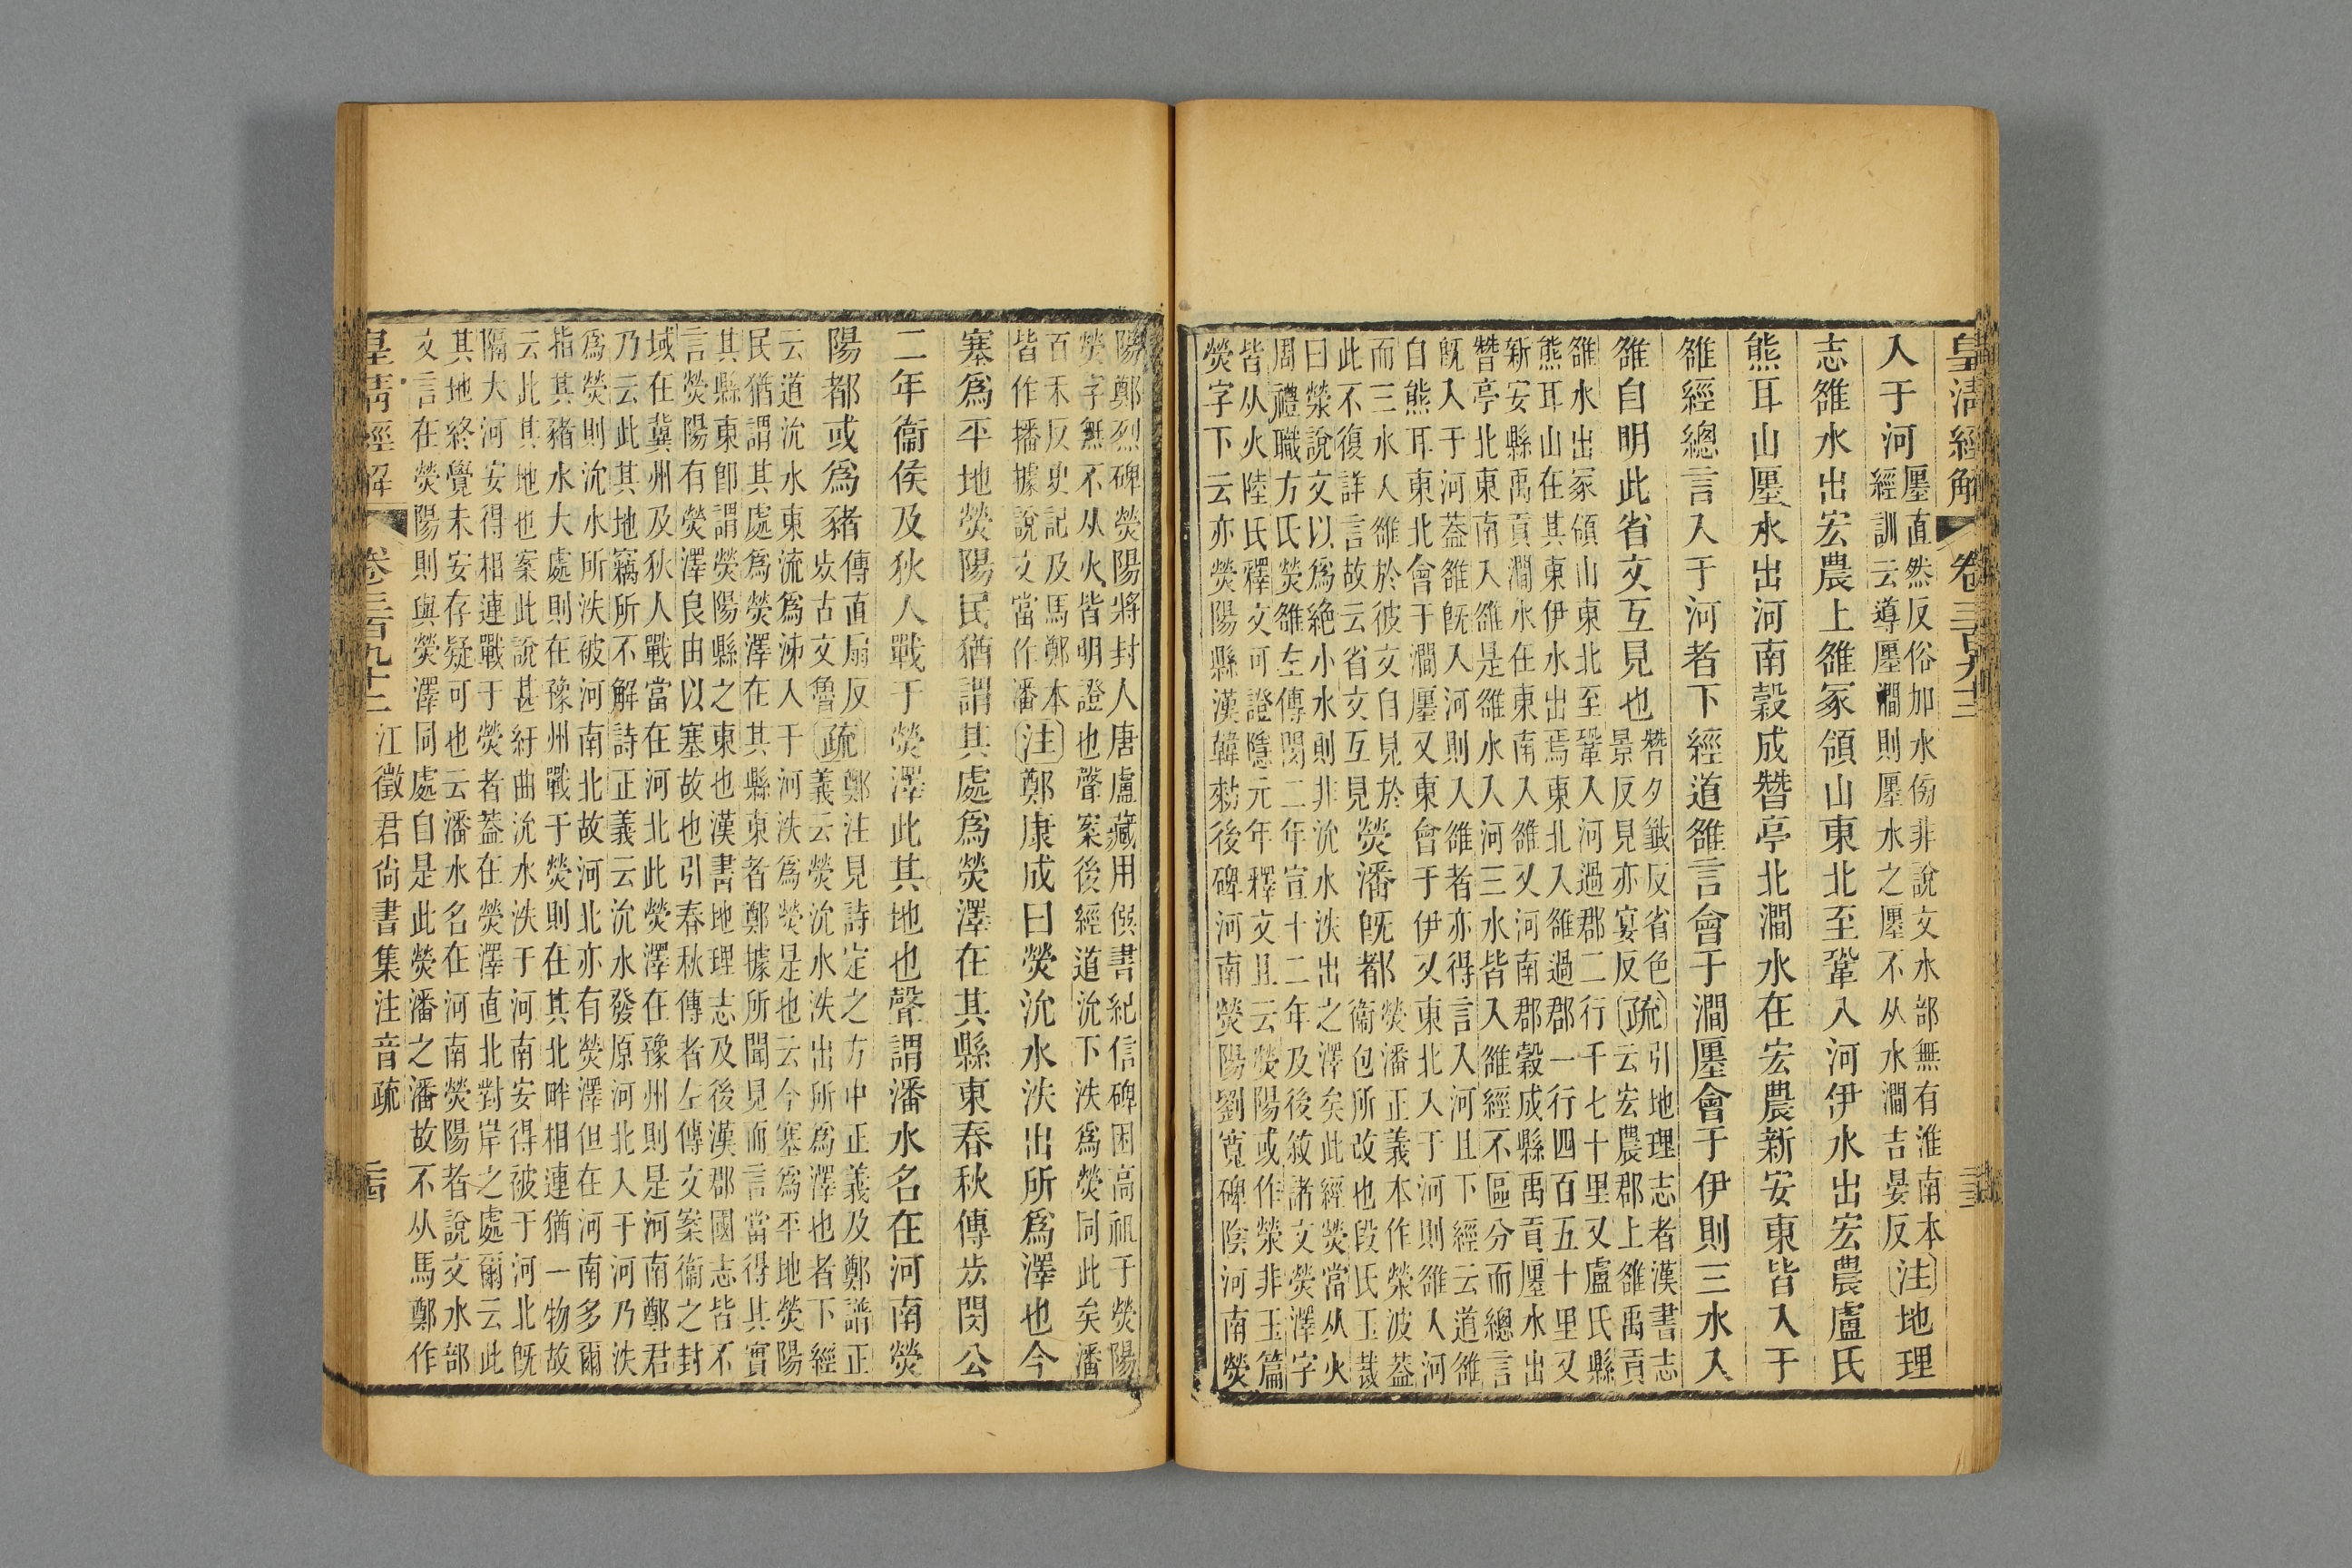 皇清經解 卷三百九十二
入于河
廛直然反俗加水傍非說文水部無有淮南本
經訓云導廛澗則廛水之廛不从水澗吉晏反
注 地理
志雒水出宏農上雒冢領山東北至鞏入河伊水出宏農盧氏
熊耳山廛水出河南穀成朁亭北澗水在宏農新安東皆入于
雒經總言入于河者下經道雒言會于澗廛會于伊則三水入
雒自明此省文互見也
朁夕籖反省色
景反見亦宴反
疏
引地理志者漢書志
云宏農郡上雒禹貢
雒水出冢領山東北至鞏入河過郡二行千七十里又盧氏縣
熊耳山在其東伊水出焉東北入雒過郡一行四百五十里又
新安縣禹貢澗水在東南入雒又河南郡穀成縣禹貢廛水出
朁亭北東南入雒是雒水入河三水皆入雒經不區分而總言
旣入于河葢雒旣入河則入雒者亦得言入河且下經云道雒
自熊耳東北會于澗廛又東會于伊又東北入于河則雒入河
而三水入雒於彼文自見於
此不復詳言故云省文互見
熒潘旣都
熒潘正義本作滎波葢
衞包所改也段氏玉裁
曰滎說文以爲絶小水則非沇水泆出之澤矣此經熒當从火
周禮職方氏熒雒左傳閔二年宣十二年及後敘諸文熒澤字
皆从火陸氏釋文可證隱元年釋文且云熒陽或作滎非玉篇
熒字下云亦熒陽縣漢韓勑後碑河南熒陽劉寬碑陰河南熒
陽鄭烈碑熒陽將封人唐盧藏用撰書紀信碑困高祖于熒陽
熒字無不从火皆明證也聲案後經道沇下泆爲熒同此矣潘
百禾反史記及馬鄭本
皆作播據說文當作潘
注 鄭康成曰熒沇水泆出所爲澤也今
塞爲平地熒陽民猶謂其處爲熒澤在其縣東春秋傳㞢閔公
二年衞侯及狄人戰于熒澤此其地也聲謂潘水名在河南熒
陽都或爲豬
傳直扇反
㞢古文魯
疏
鄭注見詩定之方中正義及鄭譜正
義云熒沇水泆出所爲澤也者下經
云道沇水東流爲泲入于河泆爲熒是也云今塞爲平地熒陽
民猶謂其處爲熒澤在其縣東者鄭據所聞見而言當得其實
其縣東卽謂熒陽縣之東也漢書地理志及後漢郡國志皆不
言熒陽有熒澤良由以塞故也引春秋傳者左傳文案衞之封
域在冀州及狄人戰當在河北此熒澤在豫州則是河南鄭君
乃云此其地竊所不解詩正義云沇水發原河北入于河乃泆
爲熒則沇水所泆被河南北故河北亦有熒澤但在河南多爾
指其豬水大處則在豫州戰于熒則在其北畔相連猶一物故
云此其地也案此說甚紆曲沇水泆于河南安得被于河北旣
隔大河安得相連戰于熒者葢在熒澤直北對岸之處爾云此
其地終覺未安存疑可也云潘水名在河南熒陽者說文水部
文言在熒陽則與熒澤同處自是此熒潘之潘故不从馬鄭作
皇清經解 卷三百九十二 江徵君尚書集注音疏